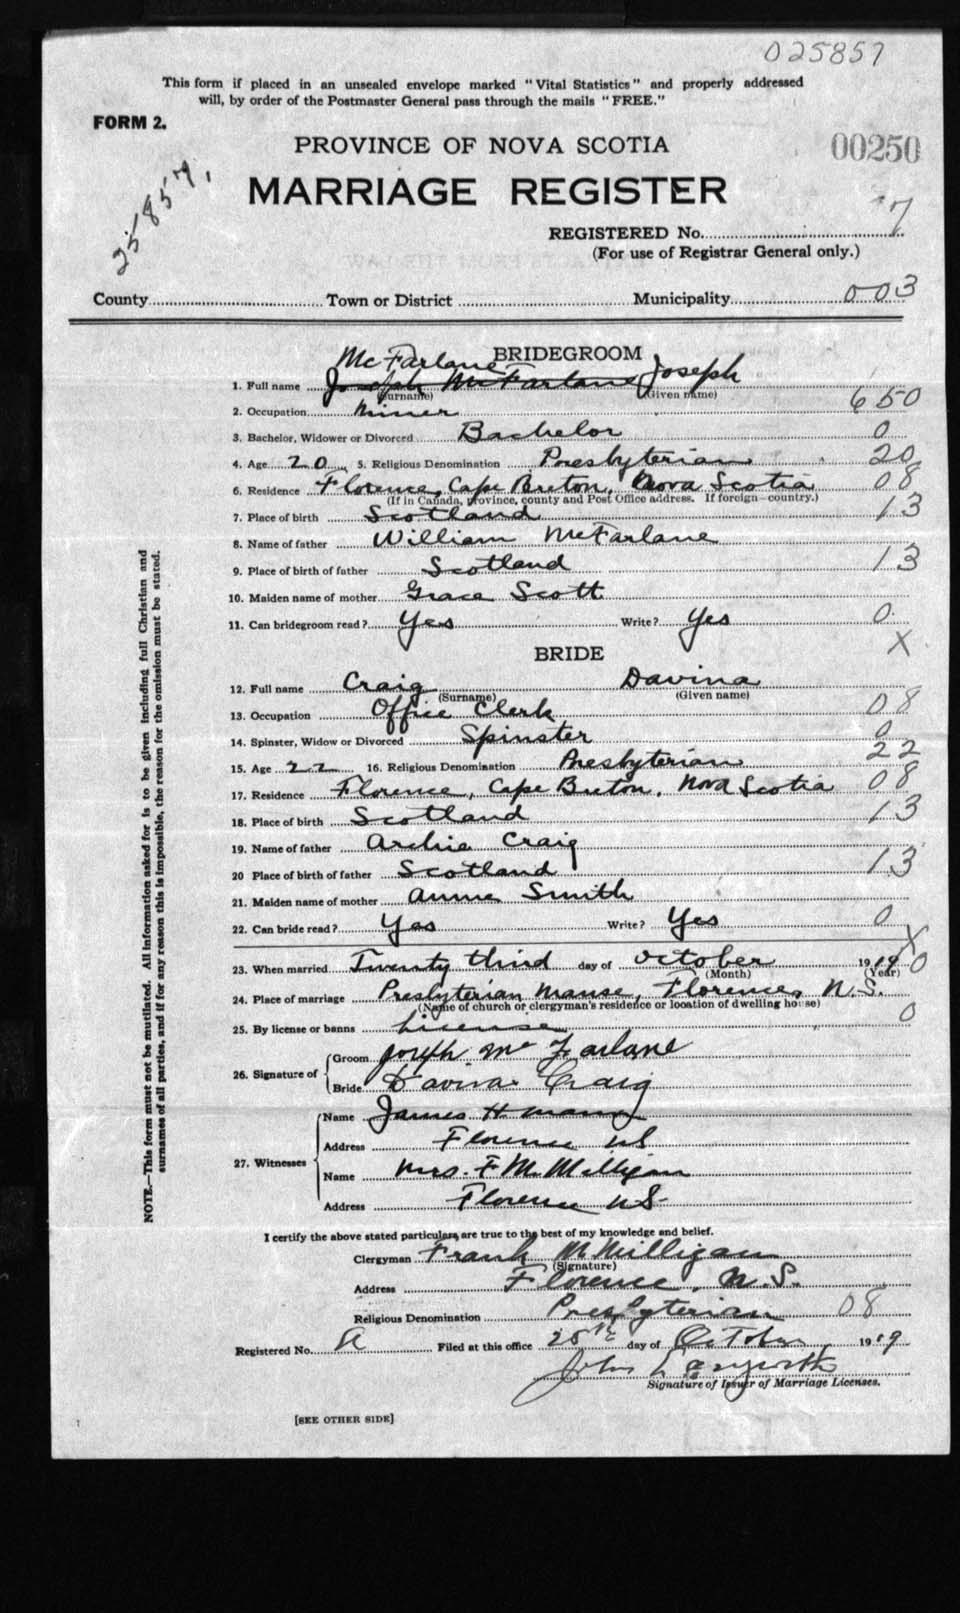 025857
This form if placed in an unsealed envelope marked "Vital Statistics" and properly addressed
will, by order of the Postmaster General pass through the mails "FREE."
FORM 2.
PROVINCE OF NOVA SCOTIA
00250
25857.
MARRIAGE REGISTER
REGISTERED No. 7
(For use of Registrar General only.)
County Town or District Municipality 003
BRIDEGROOM
McFarlane Joseph
1. Full name Joseph McFarlane
(Surname) (Given name)
2. Occupation Miner 650
3. Bachelor, Widower or Divorced Bachelor 0
4. Age 20 5. Religious Denomination Presbyterian 20
6. Residence Florence, Cape Breton, Nova Scotia 08
(If in Canada, province, county and Post Office address. If foreign—country.)
7. Place of birth Scotland 13
8. Name of father William McFarlane
9. Place of birth of father Scotland 13
10. Maiden name of mother Grace Scott
11. Can bridegroom read? Yes Write? Yes 0
X
BRIDE
12. Full name Craig Davina
(Surname) (Given name)
13. Occupation Office Clerk 08
14. Spinster, Widow or Divorced Spinster 0
15. Age 22 16. Religious Denomination Presbyterian 22
17. Residence Florence, Cape Breton, Nova Scotia 08
18. Place of birth Scotland 13
19. Name of father Archie Craig
20 Place of birth of father Scotland 13
21. Maiden name of mother Annie Smith
22. Can bride read? Yes Write? Yes 0
X
23. When married Twenty third day of October 1919 0
(Month) (Year)
24. Place of marriage Presbyterian Manse, Florence, N.S.
(Name of church or clergyman's residence or location of dwelling house)
25. By license or banns License 0
26. Signature of
Groom Joseph McFarlane
Bride Davina Craig
27. Witnesses
Name James H
Address Florence NS
Name Mrs. F. M. Milligan
Address Florence NS
I certify the above stated particulars are true to the best of my knowledge and belief.
Clergyman Frank M Milligan
(Signature)
Address Florence, N.S.
Religious Denomination Presbyterian 08
Registered No. Filed at this office 25th day of October 1919
John
Signature of Issuer of Marriage Licenses.
[SEE OTHER SIDE]
NOTE.—This form must not be mutilated. All information asked for is to be given including full Christian and
surnames of all parties, and if for any reason this is impossible, the reason for the omission must be stated.